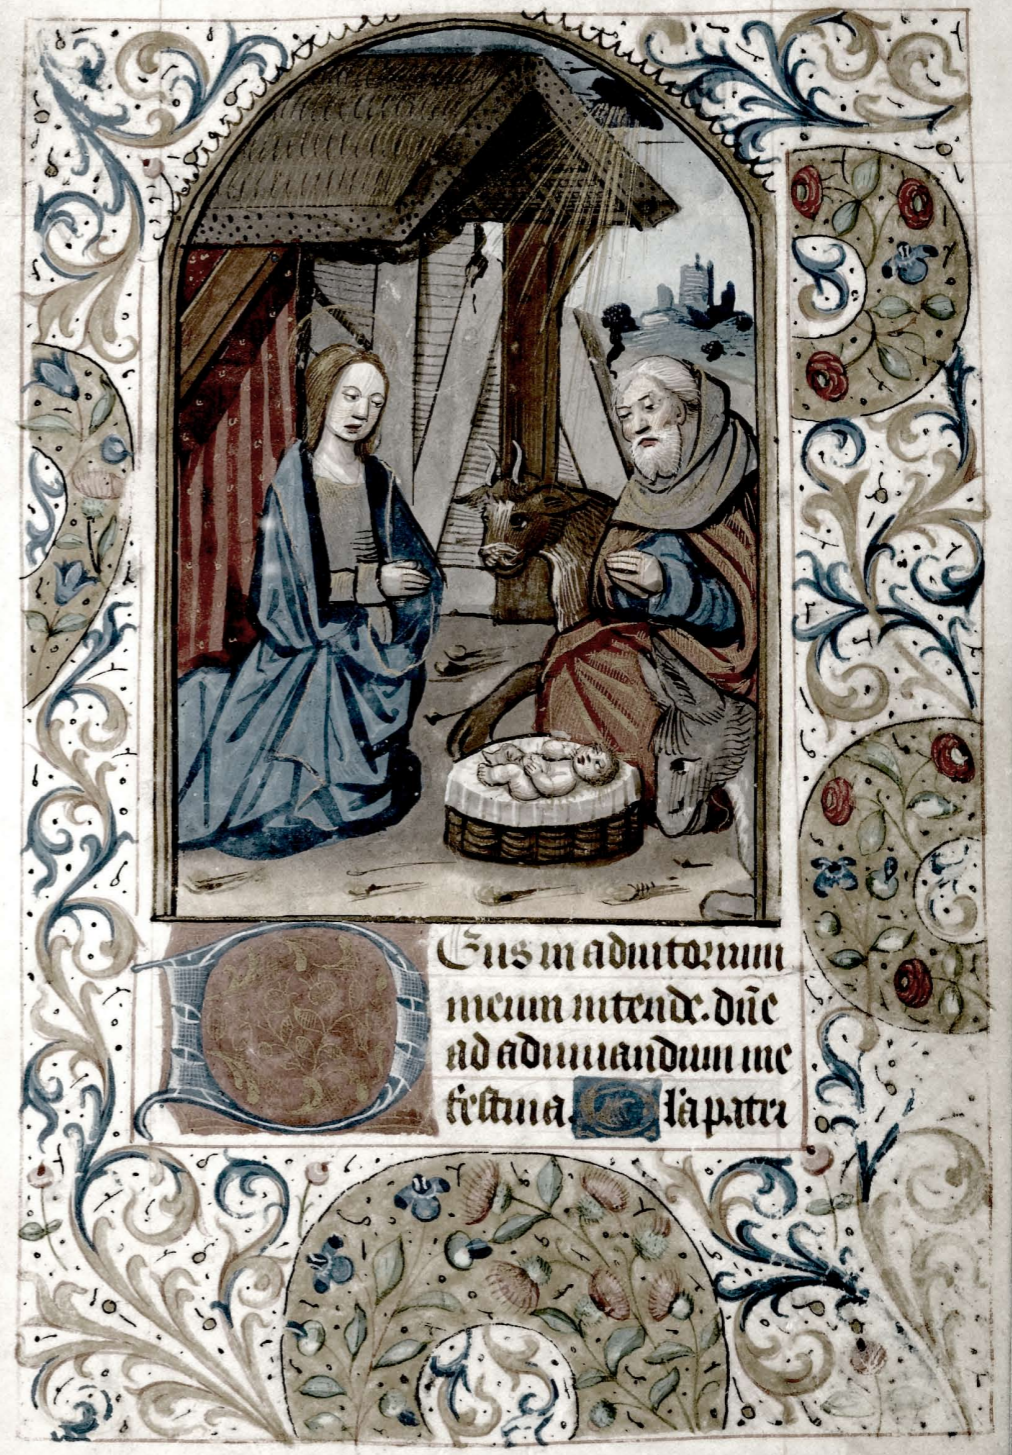 Deus in adiutorium
meum intende. dñe
ad adiuuandum me
festina. Gl'a patri